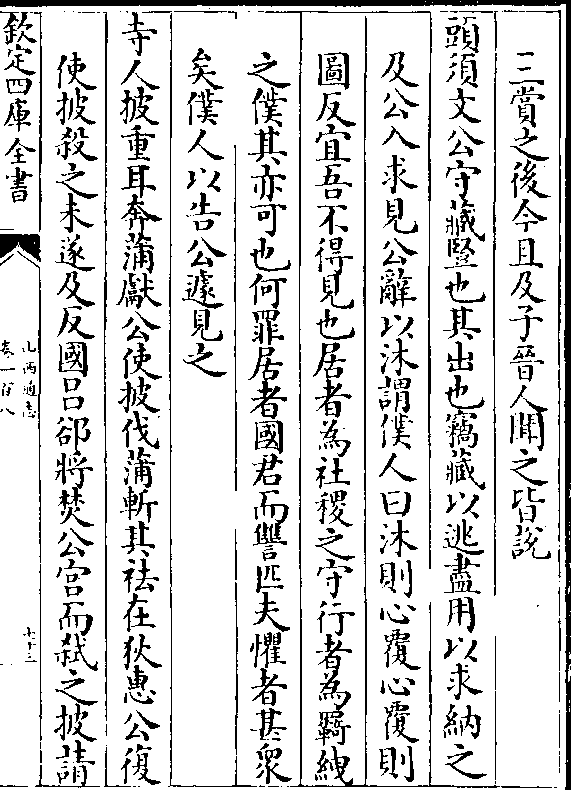 三賞之後今且及子晉人聞之皆說
頭須文公守藏豎也其出也竊藏以逃盡用以求納之
及公入求見公辭以沐謂僕人曰沐則心覆心覆則
圖反宜吾不得見也居者為社稷之守行者為羈絏
之僕其亦可也何罪居者國君而讐匹夫懼者甚衆
矣僕人以告公遽見之
寺人披重耳奔蒲獻公使披伐蒲斬其袪在狄惠公復
使披殺之未遂及反國吕郤將焚公宮而弑之披請
欽定四庫全書
山西通志
卷一百八
七十三